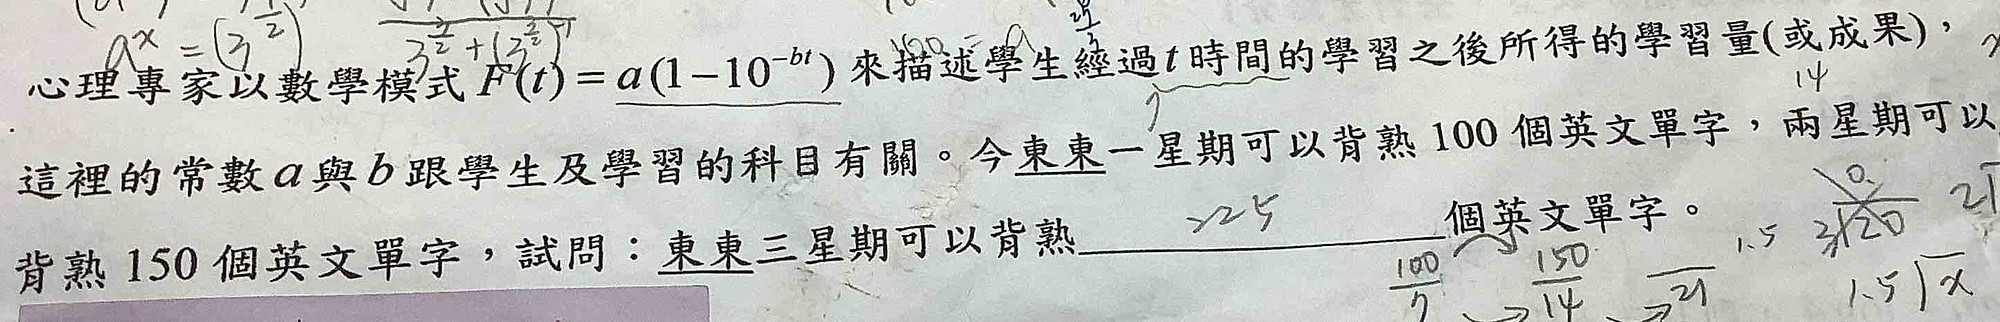 a^x = (3^{1/2})
3^{3/2} + (3^{3/2})^{-1}
心理專家以數學模式 F(t) = a(1-10^{-bt}) 來描述學生經過 t 時間的學習之後所得的學習量(或成果)，
14
這裡的常數 a 與 b 跟學生及學習的科目有關。今東東一星期可以背熟 100 個英文單字，兩星期可以
背熟 150 個英文單字，試問：東東三星期可以背熟 225 個英文單字。
100/7 → 150/14 → /21
1.5
1.5 x